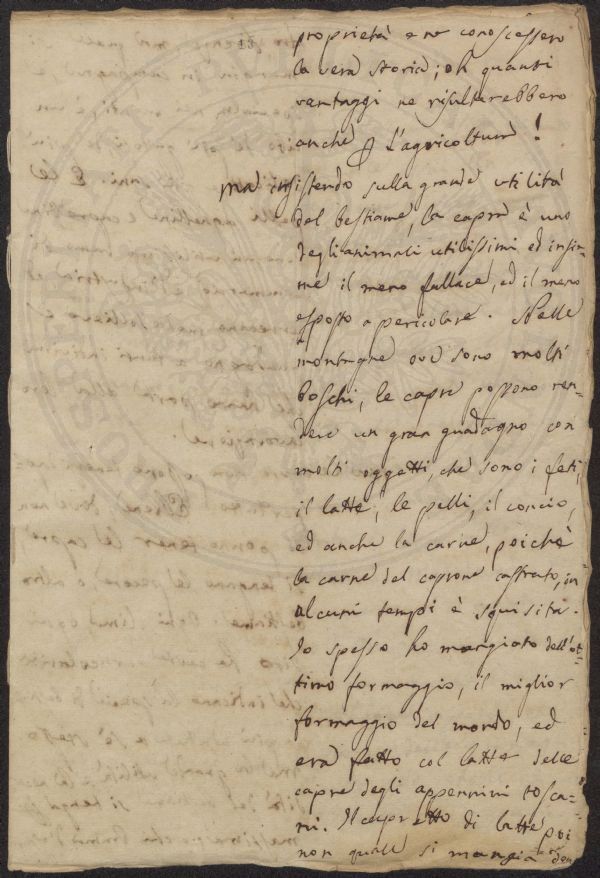 proprietà e ne conoscessero
la vera storia; oh quanti
vantaggi ne risulterebbero
anche p l'agricoltura!
ma insistendo sulla grande utilità
del bestiame, la capra è uno
degli animali utilissimi ed insie-
me il meno fallace, ed il meno
esposto a pericolare. Nelle
montagne ove sono molti
boschi, le capre possono ren-
dere un gran guadagno con
molti oggetti, che sono i feti,
il latte, le pelli, il concio,
ed anche la carne, poichè
la carne del caprone castrato, in
alcuni tempi è squisita.
Io spesso ho mangiato dell'ot-
timo formaggio, il miglior
formaggio del mondo, ed
era fatto col latte delle
capre degli appennini tosca-
ni. Il capretto di latte poi
non quale si mangia